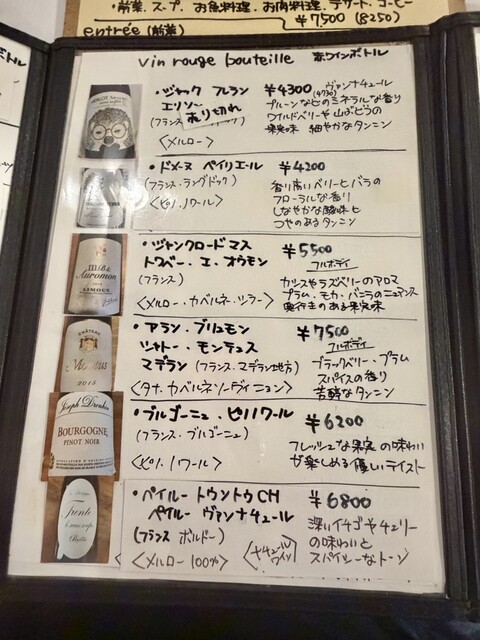 ・前菜、スープ、お魚料理、お肉料理、デザート、コーヒー
¥7,500 (8250)
entrée (前菜)
vin rouge bouteille 赤ワインボトル
・ジャック フレラン
エリソー
売り切れ
(フランス
<メルロー>
¥4300 (4730) ヴァンナチュール
プルーンなどのミネラルな香り
ワイルドベリーや山ぶどうの
果実味 細やかなタンニン
・ドメーヌ ペイリエール
(フランス・ラングドック)
<ピノ・ノワール>
¥4200
香り高いベリーとバラの
フローラルな香り
しなやかな酸味と
つやのあるタンニン
・ジャンクロードマス
トワベー・エ・オウモン
(フランス)
<メルロー・カベルネ・シラー>
¥5500
フルボディ
カシスやラズベリーのアロマ
プラム、モカ、バニラのニュアンス
奥行きのある果実味
・アラン・ブリュモン
シャトー・モンテュス
マデラン (フランス、マデラン地方)
<タナ、カベルネソーヴィニョン>
¥7500
フルボディ
ブラックベリー、プラム
スパイスの香り
芳醇なタンニン
・ブルゴーニュ・ピノノワール
(フランス・ブルゴーニュ)
<ピノ・ノワール>
¥6200
フレッシュな果実の味わい
が楽しめる優しいテイスト
・パイルー トウントゥCH
ペイルー ヴァンナチュール
(フランス ボルドー)
<メルロー 100%>
<ナチュールワイン>
¥6800
深いイチゴやチェリー
の味わいと
スパイシーなトーン
MERLOT
AURIOMON
LIMOUX
CHÂTEAU
2015
Joseph Drouhin
BOURGOGNE
PINOT NOIR
Trente